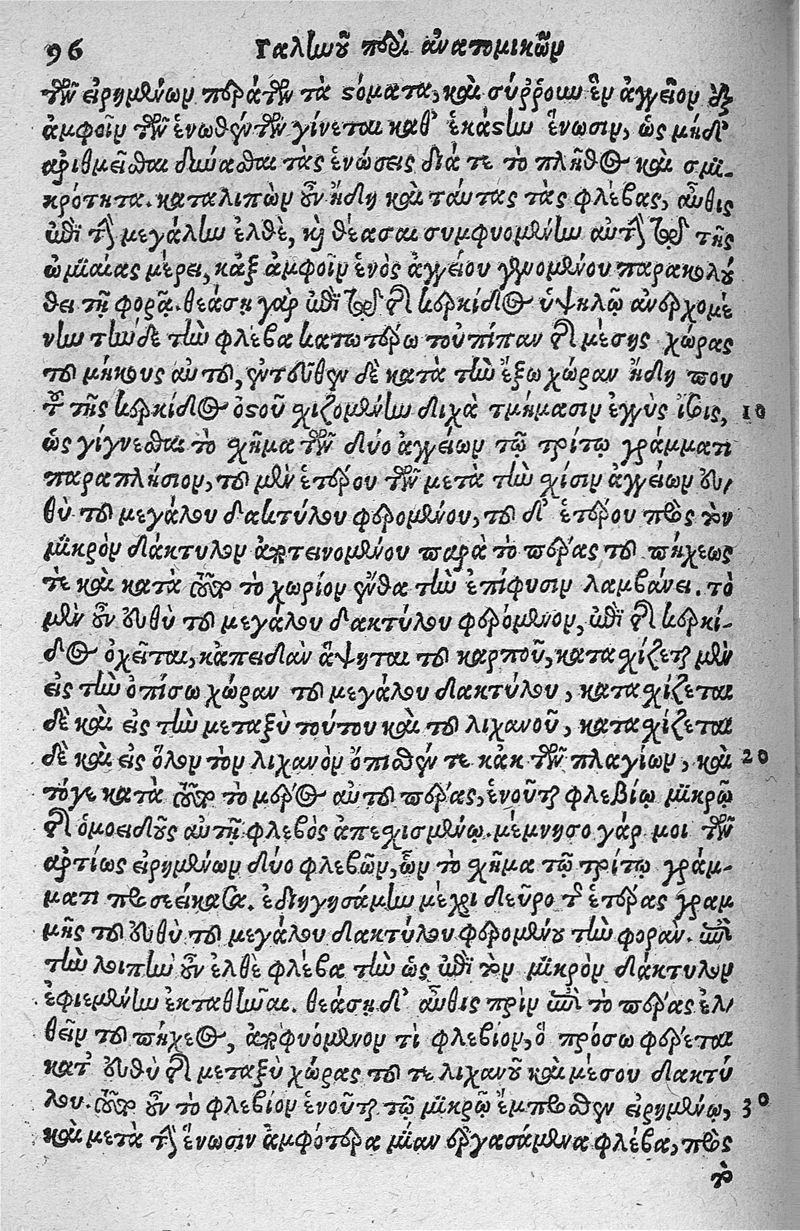 96 Γαλίωοῦ περὶ ἀνατομικῶν
τῶν εἰρημένων περάτων τὰ στόματα, καὶ σύῤῥουν ἓν ἀγγεῖον ἐξ
ἀμφοῖν τῶν ἑνωθέντων γίνεται καθ' ἑκάστην ἕνωσιν, ὡς μηδ'
ἀριθμεῖσθαι δύνασθαι τὰς ἑνώσεις διά τε τὸ πλῆθος καὶ σμι-
κρότητα. καταλιπὼν οὖν ἤδη καὶ ταύτας τὰς φλέβας, αὖθις
ἐπὶ τὴν μεγάλην ἐλθὲ, καὶ θέασαι συμφυομένην αὐτὴν τῷ τῆς
ὠμιαίας μέρει, κἀξ ἀμφοῖν ἑνὸς ἀγγείου γενομένου παρακολού
θει τῇ φορᾷ. θεάσῃ γὰρ ἐπὶ τῷ τῆς κερκίδος ὑψηλῷ ἀνερχομέ
νην τήνδε τὴν φλέβα κατωτέρω τοὐπίπαν τῆς μέσης χώρας
τοῦ μήκους αὐτοῦ, ἐντεῦθεν δὲ κατὰ τὴν ἔξω χώραν ἤδη που
τοῦ τῆς κερκίδος ὀστοῦ χιζομένην διχὰ τμήμασιν ἐγγὺς ἴσοις, 10
ὡς γίγνεσθαι τὸ σχῆμα τῶν δύο ἀγγείων τῷ τρίτῳ γράμματι
παραπλήσιον, τοῦ μὲν ἑτέρου τῶν μετὰ τὴν χίσιν ἀγγείων εὐ-
θὺ τοῦ μεγάλου δακτύλου φερομένου, τοῦ δ' ἑτέρου πρὸς τὸν
μικρὸν δάκτυλον ἀποτεινομένου παρὰ τὸ πέρας τοῦ πήχεως
τε καὶ κατὰ τοῦτο τὸ χωρίον ἔνθα τὴν ἐπίφυσιν λαμβάνει. τὸ
μὲν οὖν εὐθὺ τοῦ μεγάλου δακτύλου φερόμενον, ἐπὶ τῆς κερκί-
δος ὀχεῖται, κἀπειδὰν ἅψηται τοῦ καρποῦ, κατασχίζεται μὲν
εἰς τὴν ὀπίσω χώραν τοῦ μεγάλου δακτύλου, κατασχίζεται
δὲ καὶ εἰς τὴν μεταξὺ τούτου καὶ τοῦ λιχανοῦ, κατασχίζεται
δὲ καὶ εἰς ὅλον τὸν λιχανὸν ὄπισθέν τε κἀκ τῶν πλαγίων, καὶ 20
τόγε κατὰ τοῦτο τὸ μέρος αὐτοῦ πέρας, ἑνοῦται φλεβίῳ μικρῷ
τῆς ὁμοειδοῦς αὐτῇ φλεβὸς ἀπεχισμένῳ. μέμνησο γάρ μοι τῶν
ἀρτίως εἰρημένων δύο φλεβῶν, ὧν τὸ σχῆμα τῷ τρίτῳ γράμ-
ματι προσείκασα. ἐδιηγησάμην μέχρι δεῦρο τῆς ἑτέρας γραμ
μῆς τοῦ εὐθὺ τοῦ μεγάλου δακτύλου φερομένου τὴν φοράν. ἐπὶ
τὴν λοιπὴν οὖν ἐλθὲ φλέβα τὴν ὡς ἐπὶ τὸν μικρὸν δάκτυλον
ἐφιεμένην ἐκταθῆναι. θεάσῃ δ' αὖθις πρὶν ἐπὶ τὸ πέρας ἐλ-
θεῖν τοῦ πήχεος, ἀποφυόμενον τὶ φλεβίον, ὃ πρόσω φέρεται
κατ' εὐθὺ τῆς μεταξὺ χώρας τοῦ τε λιχανοῦ καὶ μέσου δακτύ
λου. τοῦτο οὖν τὸ φλεβίον ἑνοῦται τῷ μικρῷ ἔμπροσθεν εἰρημένῳ, 30
καὶ μετὰ τὴν ἕνωσιν ἀμφότερα μίαν ἐργασάμενα φλέβα, πρὸς